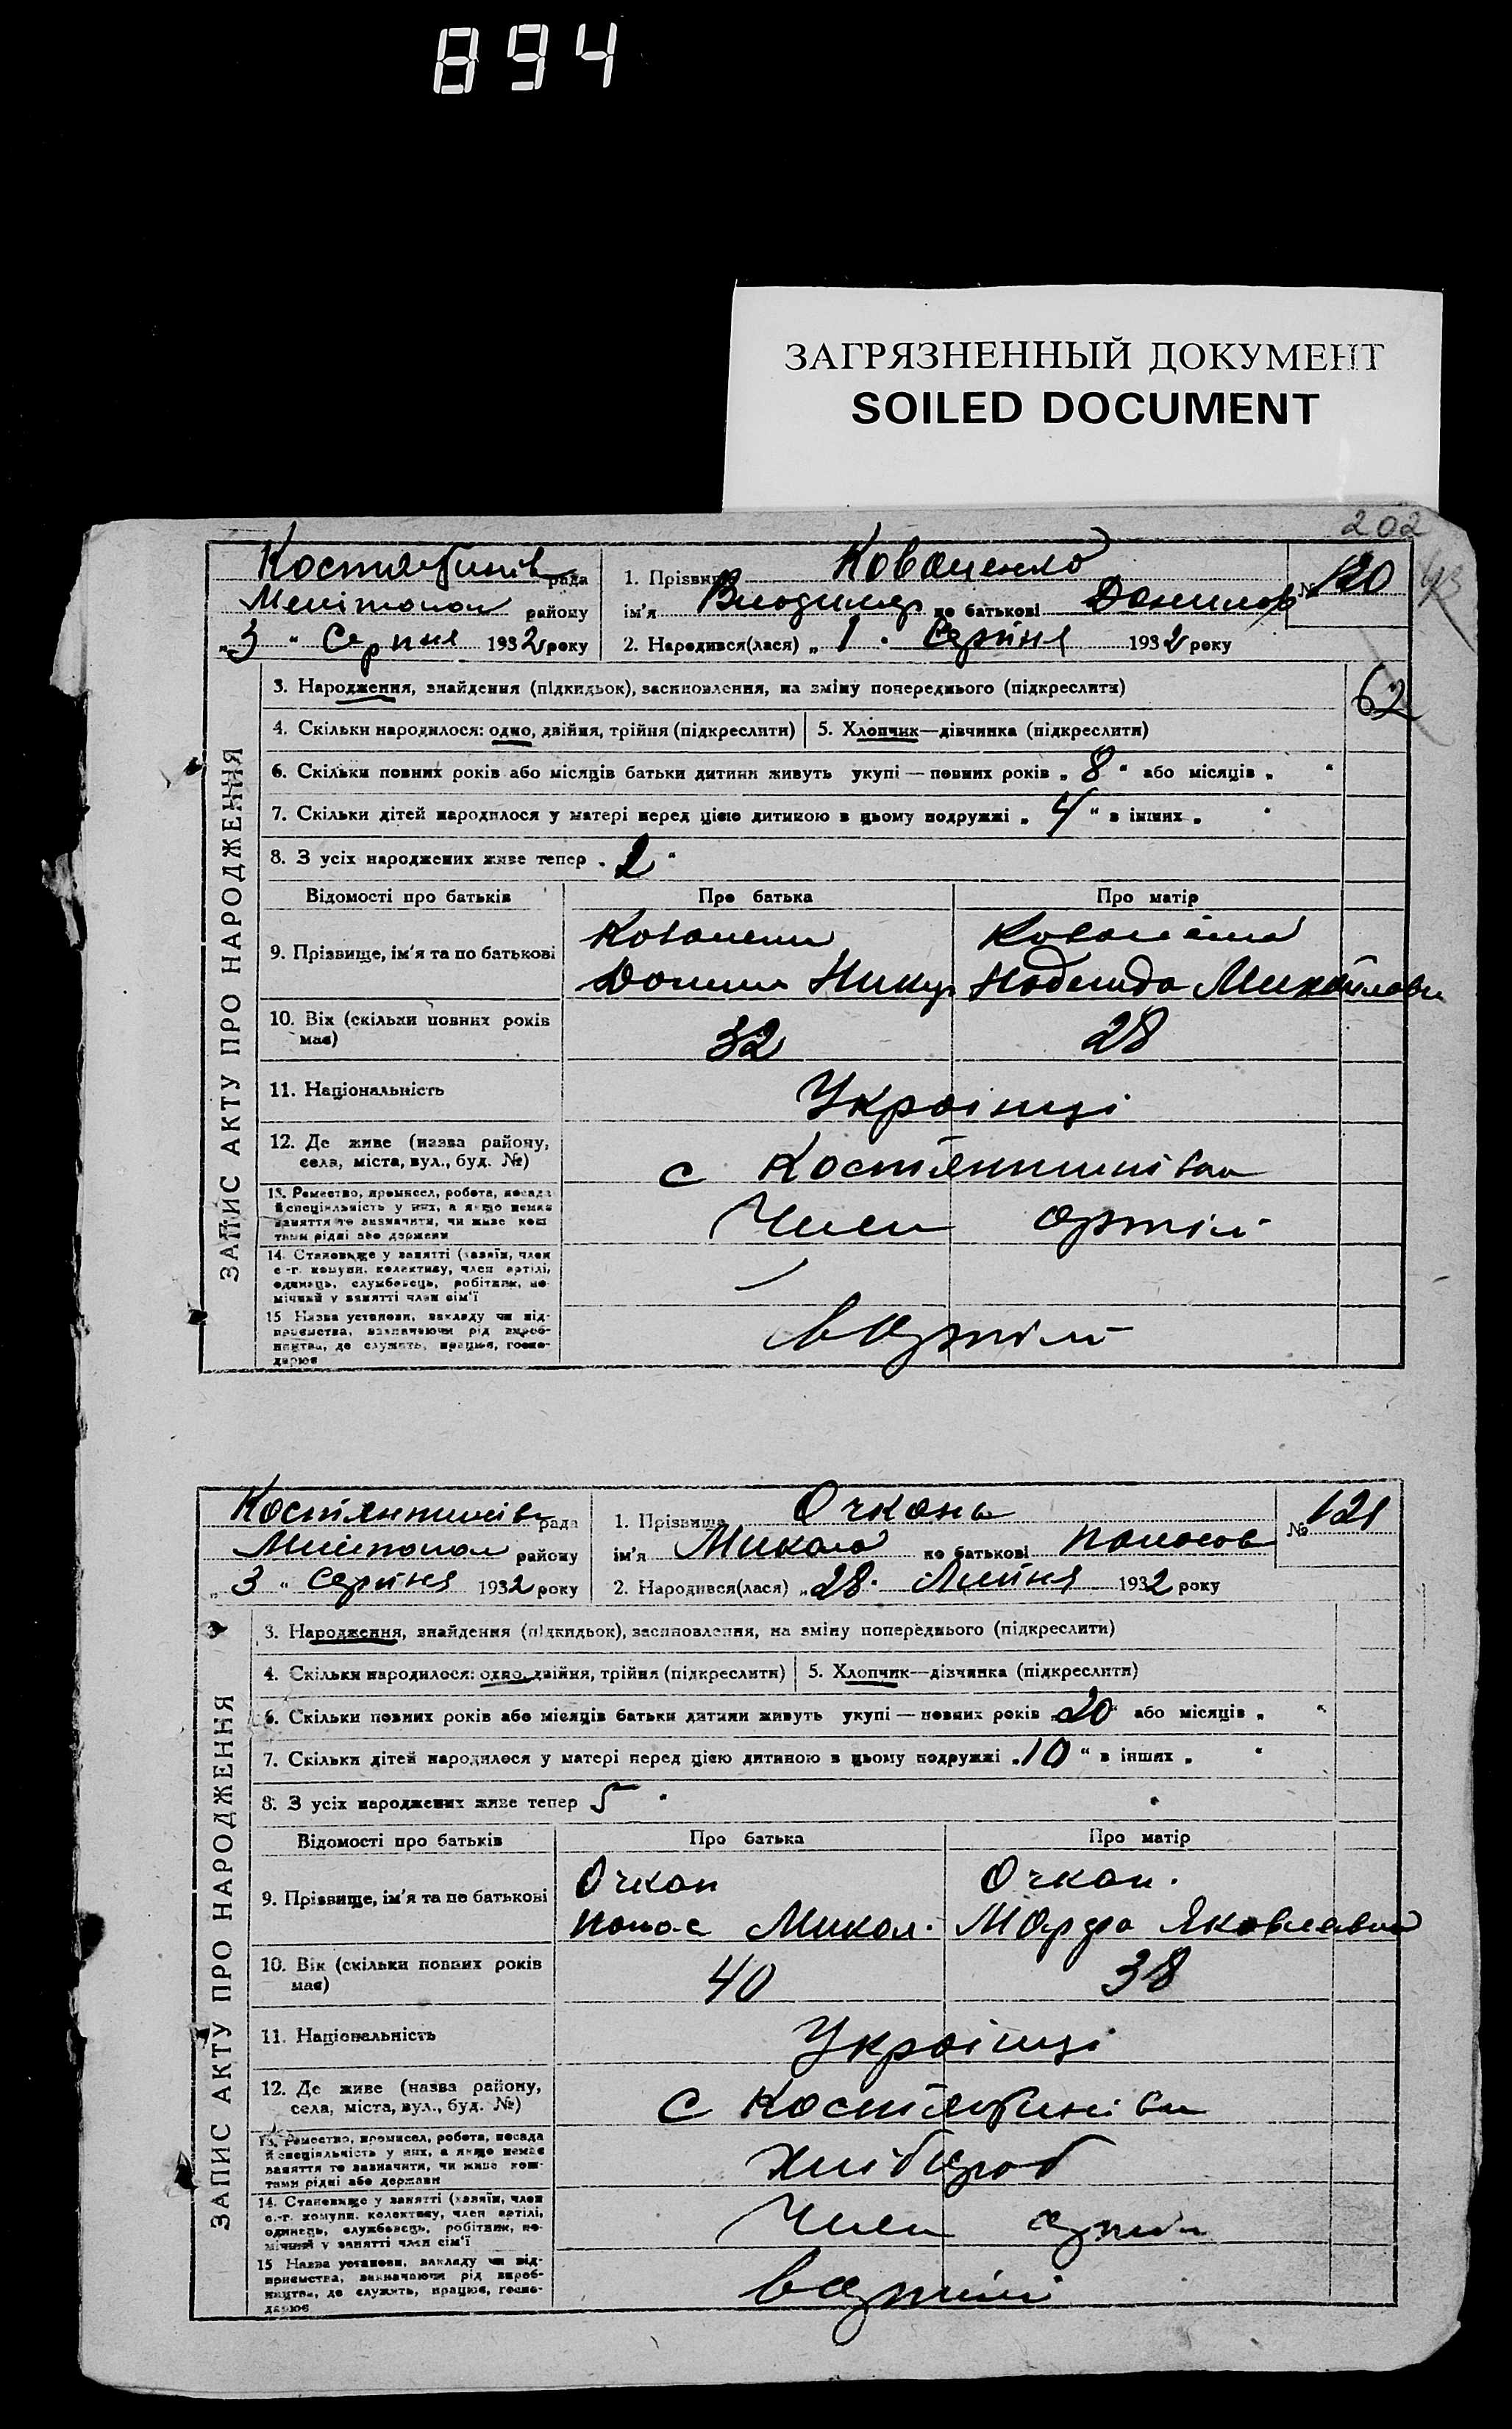 894
ЗАГРЯЗНЕННЫЙ ДОКУМЕНТ
SOILED DOCUMENT
202
рада
1. Прізвище Коваленко
№ 120
Мелітопол району
ім'я Володимир по батькові Данилов
„3" Серпня 1932 року
2. Народився(лася) „1" Серпня 1932 року
ЗАПИС АКТУ ПРО НАРОДЖЕННЯ
3. Народження, знайдення (підкидьок), засиновлення, на зміну попереднього (підкреслити)
62
4. Скільки народилося: одно, двійня, трійня (підкреслити)
5. Хлопчик—дівчинка (підкреслити)
6. Скільки повних років або місяців батьки дитини живуть укупі — повних років „8" або місяців „ "
7. Скільки дітей народилося у матері перед цією дитиною в цьому подружжі „4" в інших „ "
8. З усіх народжених живе тепер „2"
Відомості про батьків
Про батька
Про матір
9. Прізвище, ім'я та по батькові
Надежда Михайловн
10. Вік (скільки повних років має)
32
28
11. Національність
Українці
12. Де живе (назва району, села, міста, вул., буд. №)
с Костянтинівка
13. Ремество, промисел, робота, посада й спеціяльність у них, а якщо немає заняття то зазначити, чи живе коштами рідні або держави
Член артіл
14. Становище у занятті (хазяїн, член с.-г. комуни, колективу, член артілі, одинець, службовець, робітник, помічний у занятті член сім'ї
15 Назва установи, закладу чи підприємства, зазначаючи рід виробництва, де служить, працює, господарює
в артілі
Костянтинівк рада
1. Прізвище Очкань
№ 121
Мелітопол району
ім'я Микола по батькові Панасов
„3" Серпня 1932 року
2. Народився(лася) „28" Липня 1932 року
ЗАПИС АКТУ ПРО НАРОДЖЕННЯ
3. Народження, знайдення (підкидьок), засиновлення, на зміну попереднього (підкреслити)
4. Скільки народилося: одно, двійня, трійня (підкреслити)
5. Хлопчик—дівчинка (підкреслити)
6. Скільки повних років або місяців батьки дитини живуть укупі — повних років „20" або місяців „ "
7. Скільки дітей народилося у матері перед цією дитиною в цьому подружжі „10" в інших „ "
8. З усіх народжених живе тепер 5 "
Відомості про батьків
Про батька
Про матір
9. Прізвище, ім'я та по батькові
Очкан
Очкан.
Панас Микол.
Марфа Яковлевна
10. Вік (скільки повних років має)
40
38
11. Національність
Українці
12. Де живе (назва району, села, міста, вул., буд. №)
с Костянтинівка
13. Ремество, промисел, робота, посада й спеціяльність у них, а якщо немає заняття то зазначити, чи живе коштами рідні або держави
Хлібороб
14. Становище у занятті (хазяїн, член с.-г. комуни, колективу, член артілі, одинець, службовець, робітник, помічний у занятті член сім'ї
Член артіл
15 Назва установи, закладу чи підприємства, зазначаючи рід виробництва, де служить, працює, господарює
в артілі